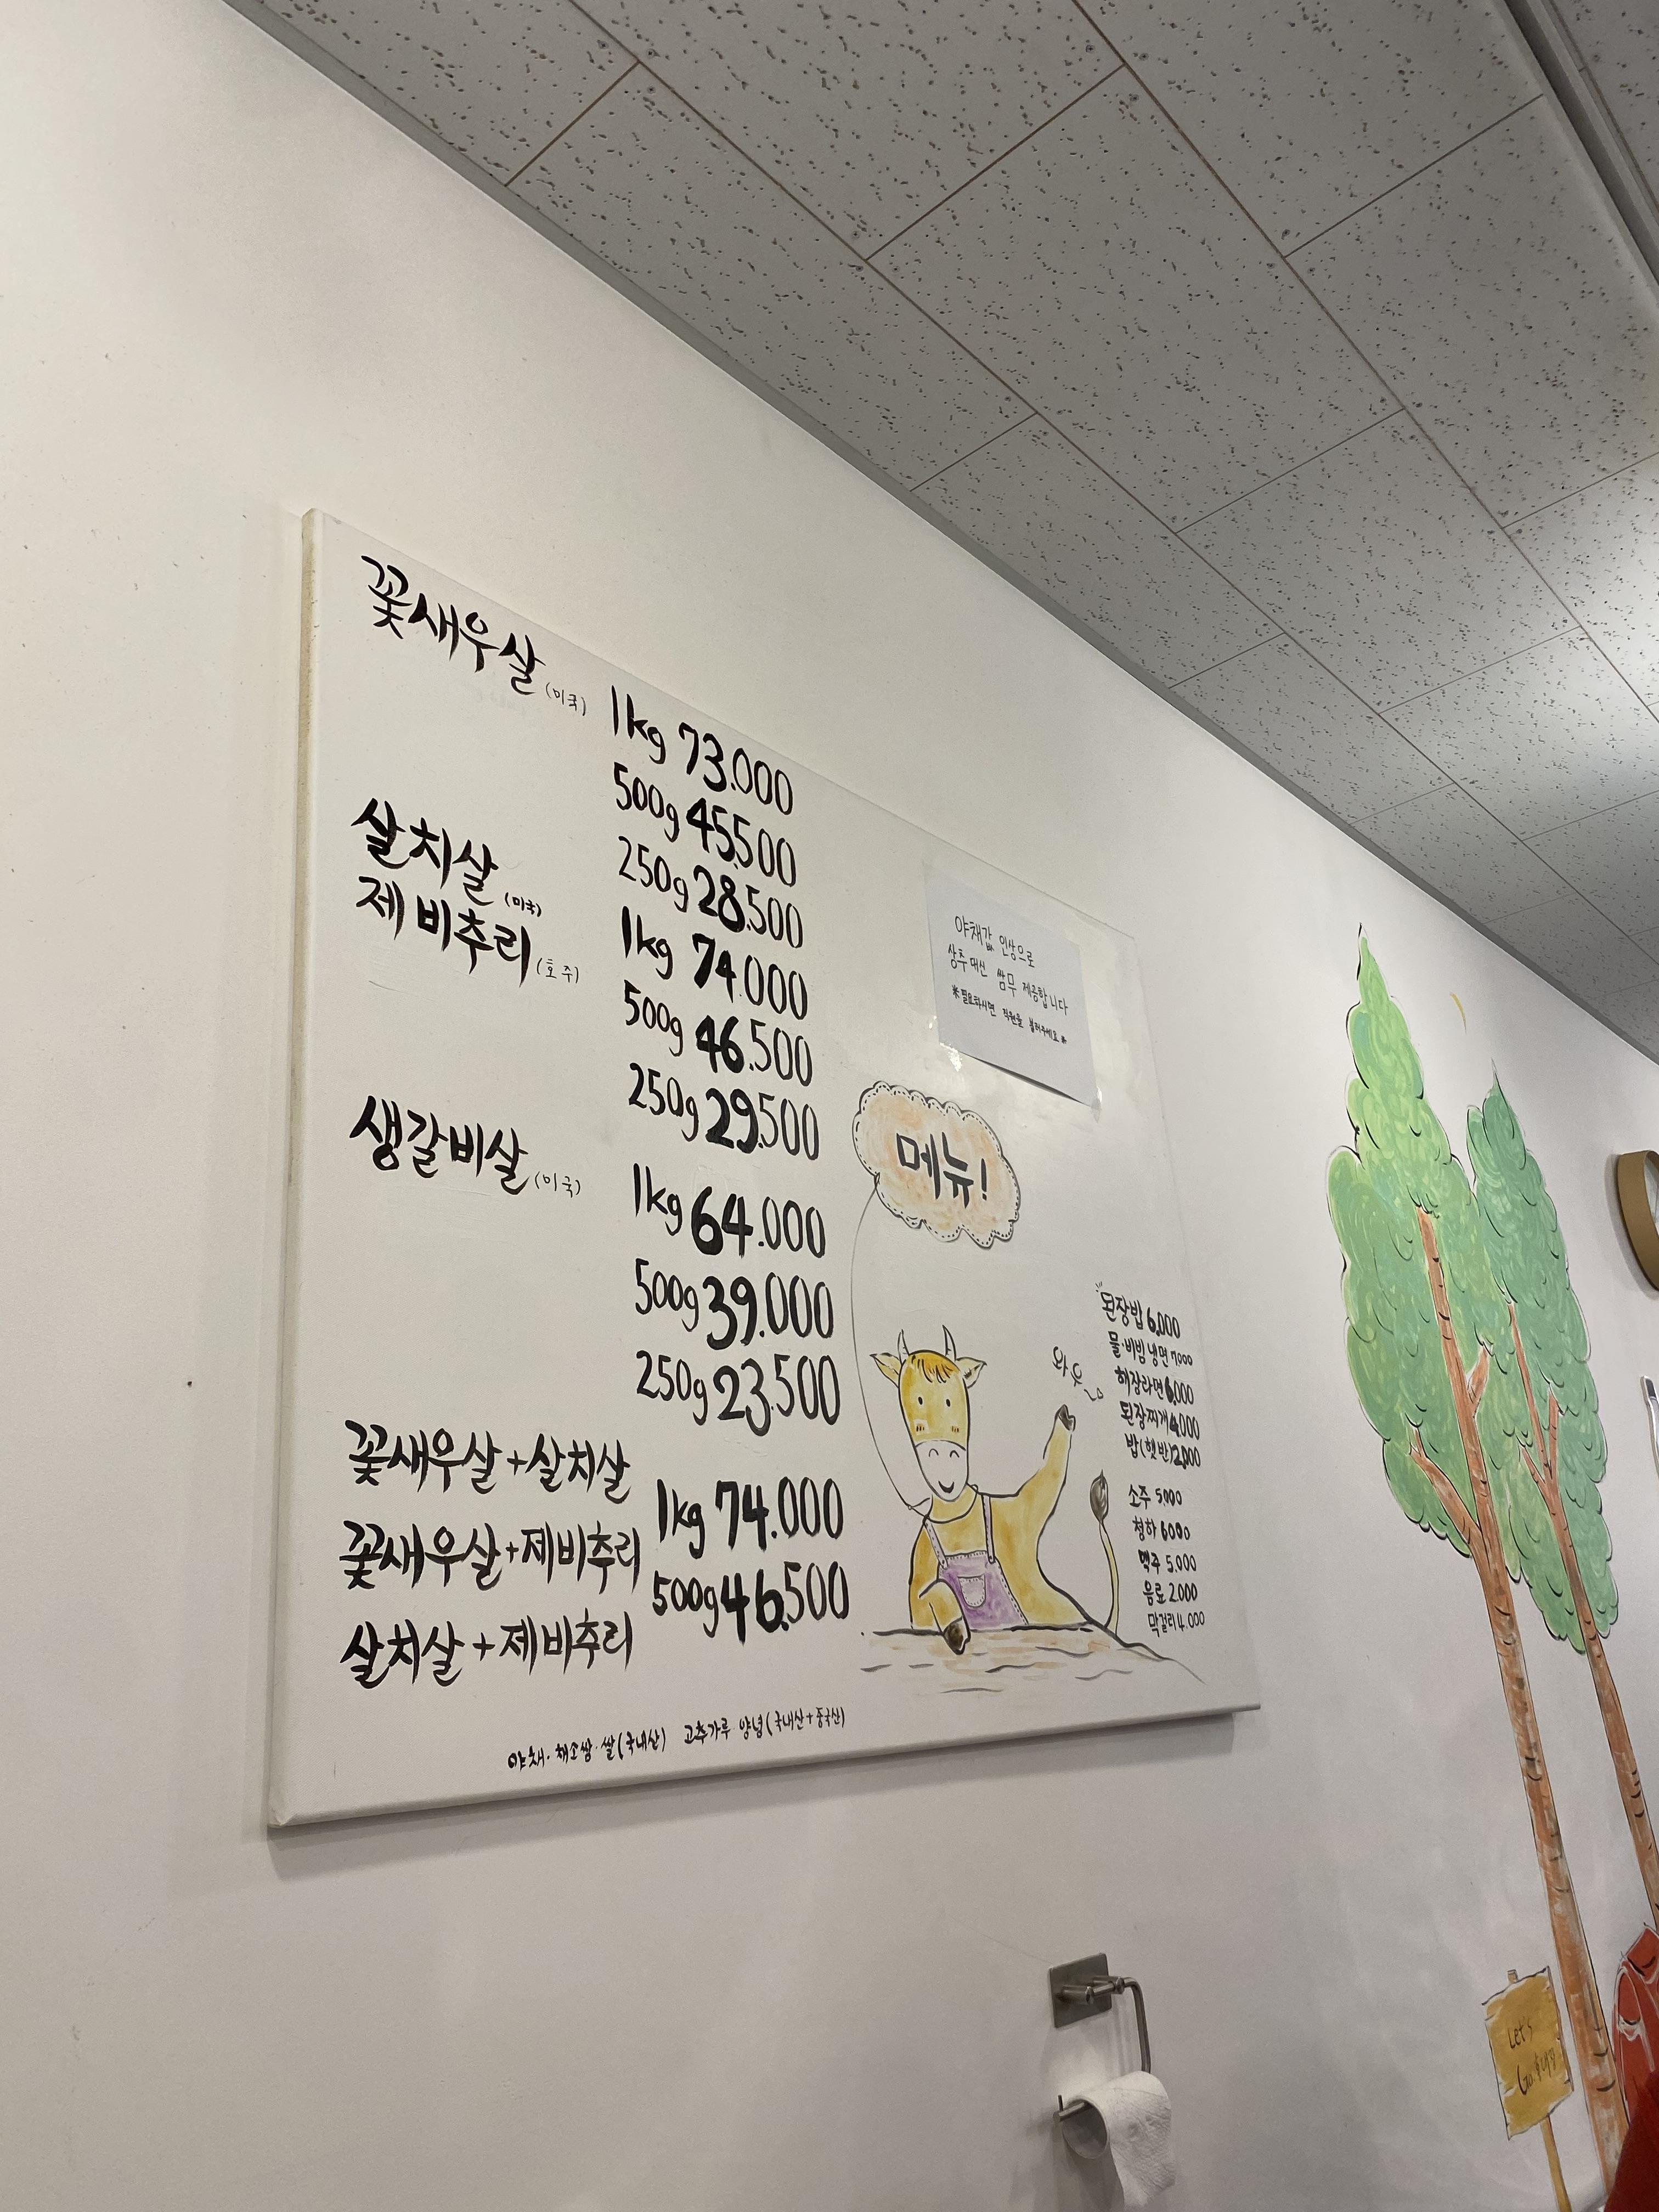 꽃새우살 (미국)
1kg 73.000
500g 45.500
250g 28.500
살치살 (미국)
제비추리 (호주)
1kg 74.000
500g 46.500
250g 29.500
생갈비살 (미국)
1kg 64.000
500g 39.000
250g 23.500
꽃새우살+살치살
꽃새우살+제비추리
살치살+제비추리
1kg 74.000
500g 46.500
야채·채소쌈·쌀(국내산) 고추가루 양념(국내산+중국산)
야채값 인상으로
상추대신 쌈무 제공합니다
*필요하시면 직원을 불러주세요*
메뉴!
된장밥 6,000
물·비빔냉면 7000
해장라면 6,000
된장찌개 4,000
밥(햇반) 2,000
소주 5.000
청하 6000
맥주 5.000
음료 2.000
막걸리 4.000
Let's
Go